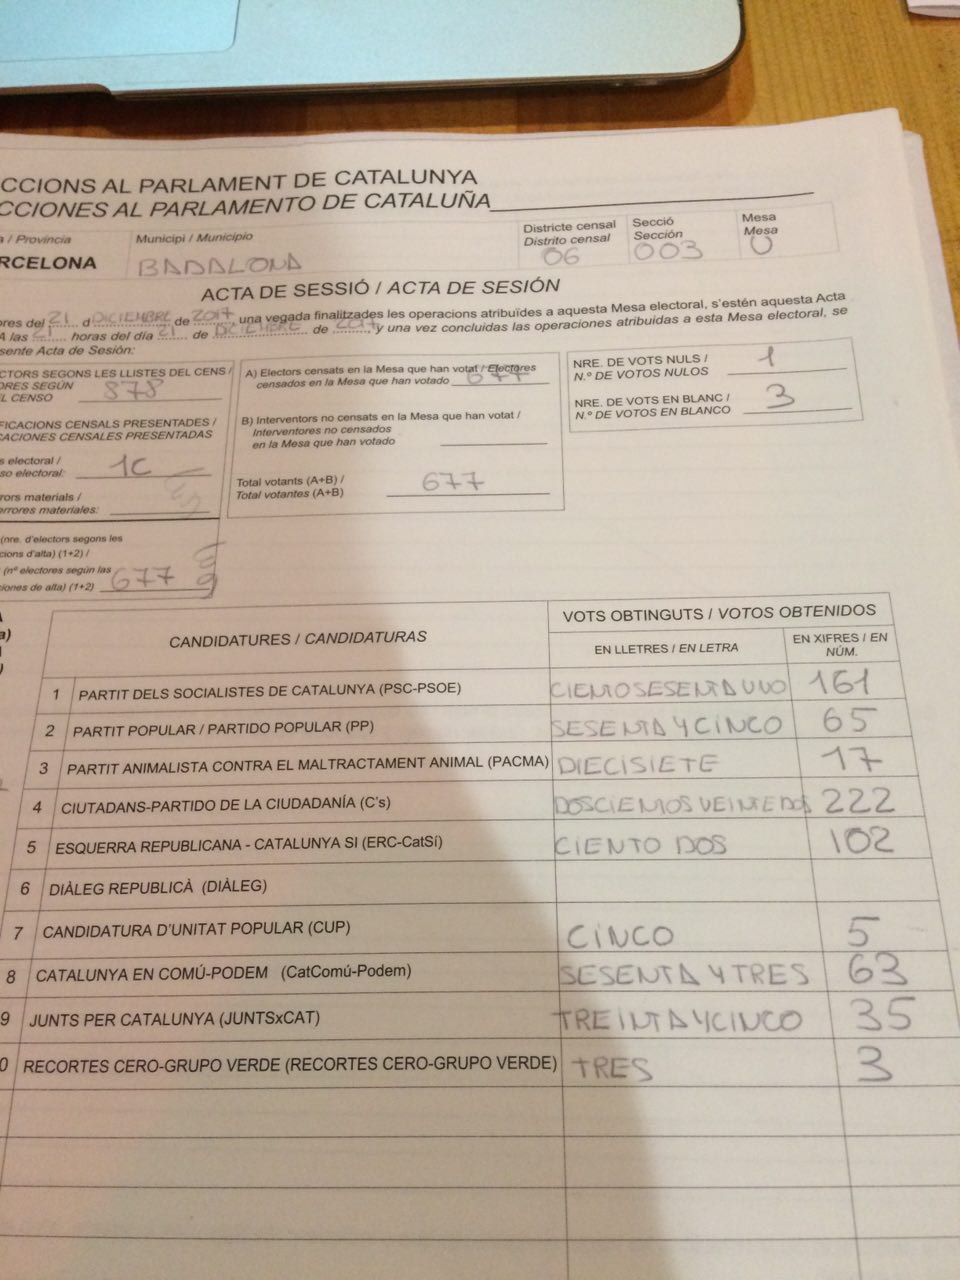 CCIONS AL PARLAMENT DE CATALUNYA
CCIONES AL PARLAMENTO DE CATALUÑA
a / Provincia
RCELONA
Municipi / Municipio
BADALONA
Districte censal
Distrito censal
06
Secció
Sección
003
Mesa
Mesa
U
ACTA DE SESSIÓ / ACTA DE SESIÓN
ores del 21 d DICIEMBRE de 2017 una vegada finalitzades les operacions atribuïdes a aquesta Mesa electoral, s'estén aquesta Acta
A las 21 horas del día 21 de DICIEMBRE de 2017 y una vez concluidas las operaciones atribuidas a esta Mesa electoral, se
sente Acta de Sesión:
CTORS SEGONS LES LLISTES DEL CENS /
ORES SEGÚN
EL CENSO 878
FICACIONS CENSALS PRESENTADES /
CACIONES CENSALES PRESENTADAS
s electoral /
so electoral:
rors materials /
errores materiales:
(nre. d'electors segons les
cions d'alta) (1+2) /
(nº electores según las
iones de alta) (1+2) 677
A) Electors censats en la Mesa que han votat / Electores
censados en la Mesa que han votado 677
B) Interventors no censats en la Mesa que han votat /
Interventores no censados
en la Mesa que han votado
Total votants (A+B) /
Total votantes (A+B) 677
NRE. DE VOTS NULS /
N.º DE VOTOS NULOS 1
NRE. DE VOTS EN BLANC /
N.º DE VOTOS EN BLANCO 3
a)
CANDIDATURES / CANDIDATURAS
VOTS OBTINGUTS / VOTOS OBTENIDOS
EN LLETRES / EN LETRA
EN XIFRES / EN
NÚM.
1 PARTIT DELS SOCIALISTES DE CATALUNYA (PSC-PSOE) CIENTOSESENTAUNO 161
2 PARTIT POPULAR / PARTIDO POPULAR (PP) SESENTA Y CINCO 65
3 PARTIT ANIMALISTA CONTRA EL MALTRACTAMENT ANIMAL (PACMA) DIECISIETE 17
4 CIUTADANS-PARTIDO DE LA CIUDADANÍA (C's) DOSCIENTOS VEINTEDOS 222
5 ESQUERRA REPUBLICANA - CATALUNYA SI (ERC-CatSí) CIENTO DOS 102
6 DIÀLEG REPUBLICÀ (DIÀLEG)
7 CANDIDATURA D'UNITAT POPULAR (CUP) CINCO 5
8 CATALUNYA EN COMÚ-PODEM (CatComú-Podem) SESENTA Y TRES 63
9 JUNTS PER CATALUNYA (JUNTSxCAT) TREINTA Y CINCO 35
0 RECORTES CERO-GRUPO VERDE (RECORTES CERO-GRUPO VERDE) TRES 3